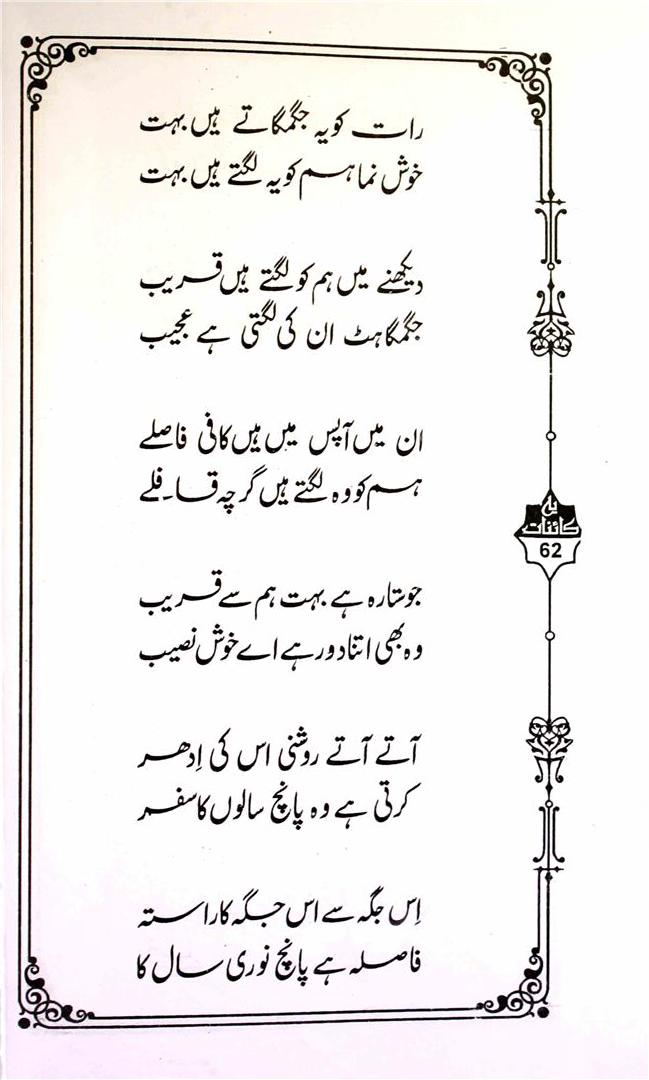 رات کو یہ جگمگاتے ہیں بہت
خوش نما ہم کو یہ لگتے ہیں بہت
دیکھنے میں ہم کو لگتے ہیں قریب
جگمگاہٹ ان کی لگتی ہے عجیب
ان میں آپس میں ہیں کافی فاصلے
ہم کو وہ لگتے ہیں گرچہ قافلے
جو ستارہ ہے بہت ہم سے قریب
وہ بھی اتنا دور ہے اے خوش نصیب
آتے آتے روشنی اس کی اِدھر
کرتی ہے وہ پانچ سالوں کا سفر
اِس جگہ سے اس جگہ کا راستہ
فاصلہ ہے پانچ نوری سال کا
یہ
کائنات
62